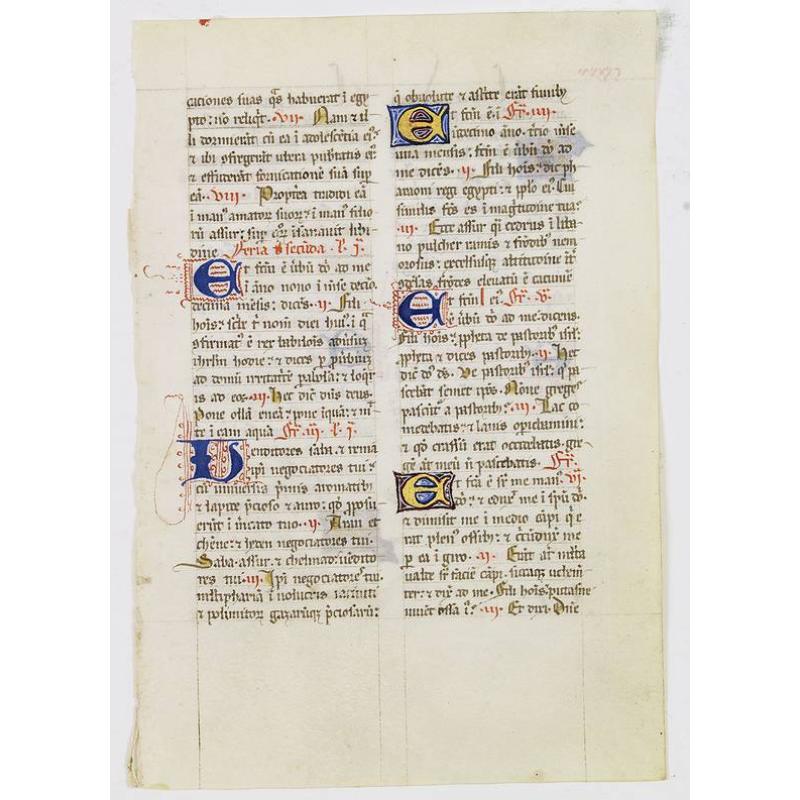 caciones suas qs habuerat i egy
pto: no reliqt. vii Nam & il
li dormierut cu ea i adolescetia ei9
& ibi sfregerut ubera pubtatis ei9
& effuderut fornicatione sua sup
ea. viii Propterea tradidi ea
i man9 amator suor & i man9 filio
ru assur: sup quor isanauit libi
dine feria secuda. l. i.
Et fcm e ubu dni ad me
i ano nono i mse decio
decima mesis: dices. ii Fili
hois: scbe t nom diei hui9 i q
sfirmat e rex babilois adusus
ihrlm hodie: & dices p puerbiu
ad domu irritatre pabola: & loqr
is ad eos. iii Hec dic dns deus.
Pone olla enea: pone iqua: & mi
te i eam aqua Fr. iii. l. i.
Venditores saba & rema
ipi negociatores tui:
cu uniuersis pmis aromatib
& lapide pcioso & auro: qd pposu
erut i mcato tuo. ii Aran et
chene: & heden negociatores tui.
Saba. assur. & chelmad: uedito
res tui. iii Ipi negociatores tui.
multipharia i uolucris iacincti
& polimitor gazaruq pciosaru:
q obuolute & astcte erat funib9
Et fcm e i Fr. iiii.
uidecimo ano. tcio mse
una mensis: fcm e ubu dni ad
me dices. ii. Fili hois: dic ph
araoni regi egypti: & pplo ei9 Cui
similis fcs es i magtudine tua:
iii. Ecce assur qi cedrus i liba
no pulcher ramis & frodib9 nem
orosus: excelsusq altitudine it
sdesas frodes eleuatu e cacume
Et fcm ei9 Fr. v.
e ubu dni ad me. dicens.
Fili hois: ppheta de pastorib9 isrl:
ppheta & dices pastorib9. ii. Hec
dic dns ds. Ve pastorib9 isrl: q pa
scebat semet ipos. None greges
pascut a pastorib9: iii. Lac co
medebatis: & lanis opiebamini:
& qd crassu erat occidebatis: gre
ge at meu n pascebatis. Fr.
Et fca e sr me man9 vi.
dni: & eduxit me i spu dni.
& dimisit me i medio capi q e
rat plen9 ossib9: & circuduxit me
p ea i giro. ii. Erat at multa
ualde sr facie capi. siccaq uehem
ter: & dix ad me. Fili hois. putasne
uiuet ossa i? iii. Et dixi. Dne